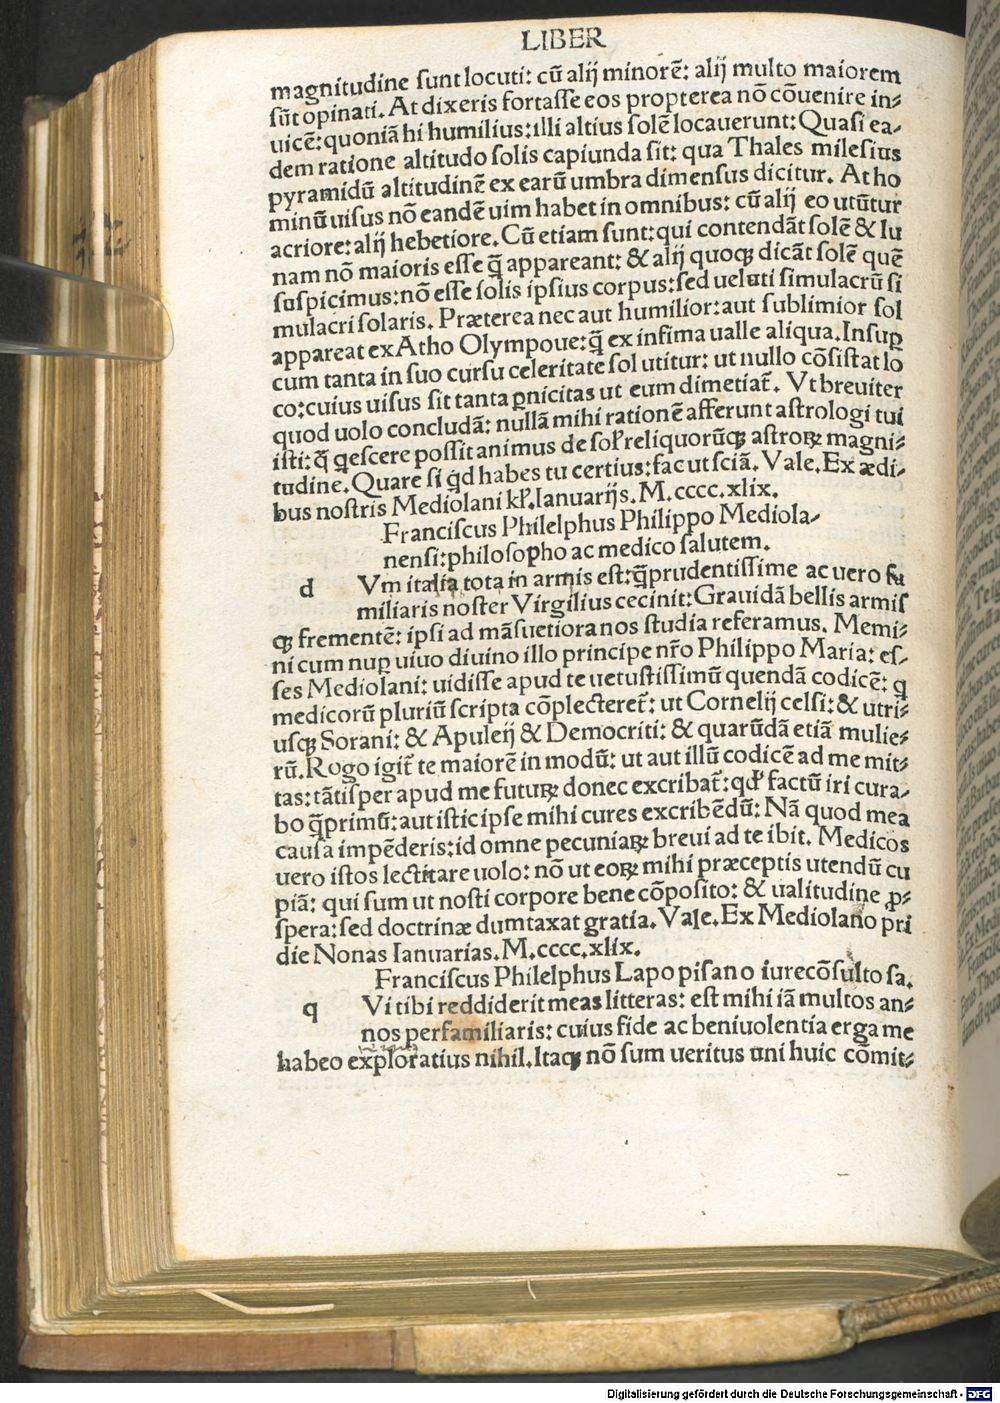 LIBER
magnitudine sunt locuti: cū alij minorē: alij multo maiorem
sūt opinati. At dixeris fortasse eos propterea nō cōuenire in-
uicē: quoniā hi humilius: illi altius solē locauerunt: Quasi ea-
dem ratione altitudo solis capiunda sit: qua Thales milesius
pyramidū altitudinē ex earū umbra dimensus dicitur. At ho
minū uisus nō eandē uim habet in omnibus: cū alij eo utūtur
acriore: alij hebetiore. Cū etiam sunt: qui contendāt solē & lu
nam nō maioris esse q̄ appareant: & alij quoqꝫ dicāt solē quē
suspicimus: nō esse solis ipsius corpus: sed ueluti simulacrū si
mulacri solaris. Præterea nec aut humilior: aut sublimior sol
appareat ex Atho Olympoue: q̄ ex infima ualle aliqua. Insuꝑ
cum tanta in suo cursu celeritate sol utitur: ut nullo cōsistat lo
co: cuius uisus sit tanta ꝑnicitas ut eum dimetiat̄. Vt breuiter
quod uolo concludā: nullā mihi rationē afferunt astrologi tui
isti: q̄ q̄escere possit animus de sol̓ reliquorūqꝫ astroꝝ magni-
tudine. Quare si qd habes tu certius: fac ut sciā. Vale. Ex ædi-
bus nostris Mediolani kl̓. Ianuarijs. M. cccc. xlix.
Franciscus Philelphus Philippo Mediola-
nensi: philosopho ac medico salutem.
d Vm italia tota in armis est: q̄ prudentissime ac uero fa
miliaris noster Virgilius cecinit: Grauidā bellis armis
qꝫ frementē: ipsi ad māsuetiora nos studia referamus. Memi-
ni cum nuꝑ uiuo diuino illo principe nr̄o Philippo Maria: es-
ses Mediolani: uidisse apud te uetustissimū quendā codicē: q
medicorū pluriū scripta cōplecteret̄: ut Cornelij celsi: & utri-
usqꝫ Sorani: & Apuleij & Democriti: & quarūdā etiā mulie-
rū. Rogo igit̄ te maiorē in modū: ut aut illū codicē ad me mit-
tas: tātisper apud me futuꝝ donec excribat̄: qd̓ factū iri cura-
bo q̄primū: aut istic ipse mihi cures excribēdū: Nā quod mea
causa impēderis: id omne pecuniaꝝ breui ad te ibit. Medicos
uero istos lectitare uolo: nō ut eoꝝ mihi præceptis utendū cu
piā: qui sum ut nosti corpore bene cōposito: & ualitudine ꝓ-
spera: sed doctrinæ dumtaxat gratia. Vale. Ex Mediolano pri
die Nonas Ianuarias. M. cccc. xlix.
Franciscus Philelphus Lapo pisano iurecōsulto sa.
q Vi tibi reddiderit meas litteras: est mihi iā multos an-
nos perfamiliaris: cuius fide ac beniuolentia erga me
habeo exploratius nihil. Itaqꝫ nō sum ueritus uni huic cōmit-
Digitalisierung gefördert durch die Deutsche Forschungsgemeinschaft - DFG